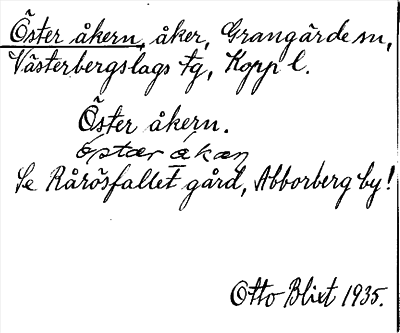 Öster åkern, åker, Grangärde sn,
Västerbergslags tg, Kopp l.
Öster åkern.
Se Rårösfallet I gård, Abborberg by!
Otto Blixt 1935.